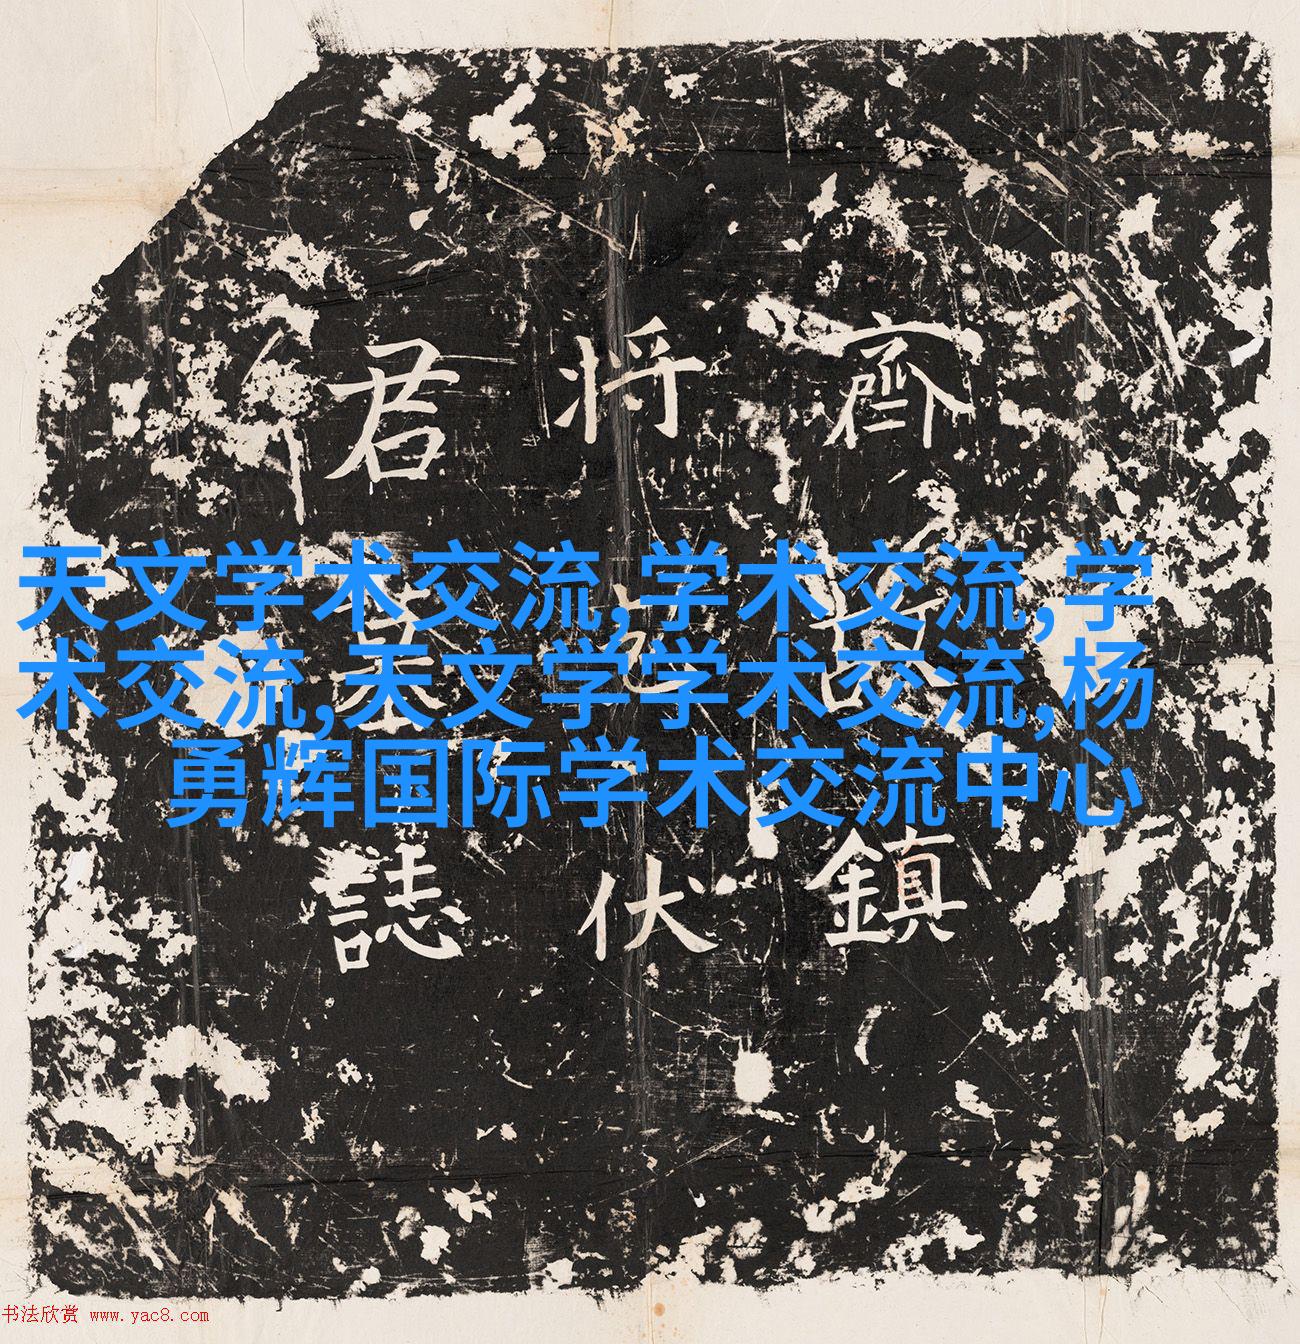 齊鎮
将伏
君墓誌
天文学术交流,学术交流,学
术交流,天文学学术交流,杨
勇辉国际学术交流中心
书法欣赏 www.yac8.com